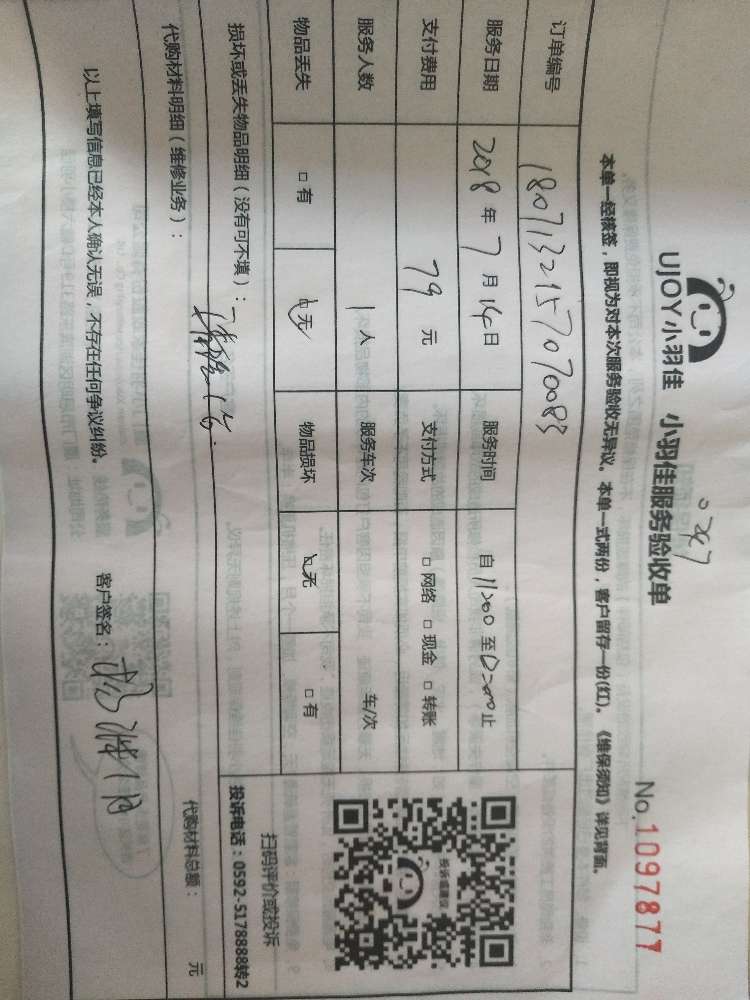 UJOY小羽佳 小羽佳服务验收单 No.1097877
本单一经核签，即视为对本次服务验收无异议。本单一式两份，客户留存一份(红)。《维保须知》详见背面。
订单编号 1807132157070083
服务日期 2018 年 7 月 14 日 服务时间 自 11:00 至 12:00 止
支付费用 79 元 支付方式 □ 网络 □ 现金 □ 转账
服务人数 1 人 服务车次 车/次
物品丢失 □ 有 □ 无 物品损坏 □ 无 □ 有
损坏或丢失物品明细（没有可不填）：
代购材料明细（维修业务）： 代购材料总额： 元
以上填写信息已经本人确认无误，不存在任何争议纠纷。 客户签名：
投诉或建议
扫码评价或投诉
投诉电话：0592-5178888转2